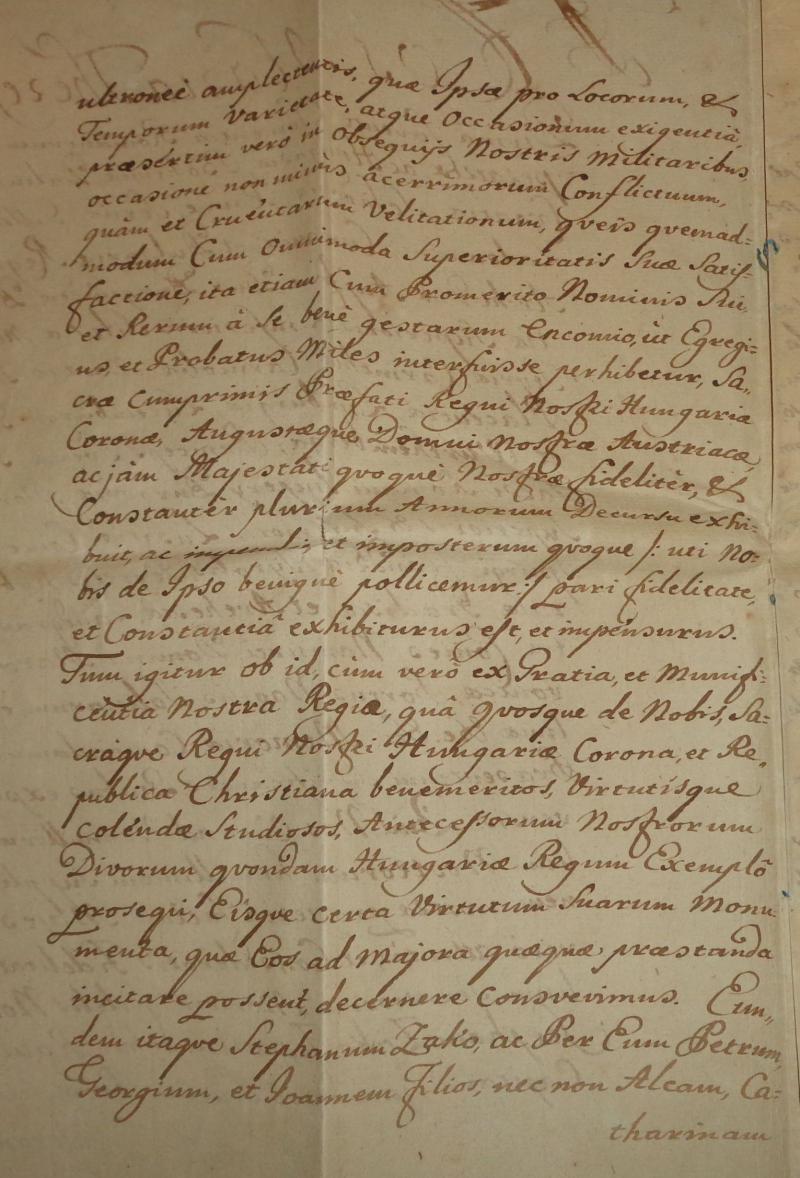 ultroneè amplectentis, quæ Ipsæ pro Locorum, &
Temporum Varietate, atque Occasionum exigentiâ,
præsertim verò in Obsequijs Nostris Militaribus
occasione non minùs acerrimorum Conflictuum,
quàm et Cruentarum Velitationum, qveis qvemad=
modum Cum Omnimoda Superioritatis Suæ Satis-
factione, ita etiam Cum Promerito Nominis Sui,
et Rerum à Se benè gestarum Encomio, ùt Egregi=
us, et Probatus Miles interfuisse perhibetur, Sa,,
cræ cumprimis Præfati Regni Nostri Hungariæ
Coronæ, Augustæque Domui Nostræ Austriacæ,
ac jàm Majestati qvoquè Nostræ fidelitèr, &
Constantèr plurium Annorum Decursu exhi=
buit, ac et imposterum qvoque /: uti No=
bis de Ipso benignè pollicemur :/ pari fidelitate,
et Constantiâ exhibiturus est, et impensurus.
Tum igitur ob id, cùm verò ex Gratia, et Munifi=
centia Nostra Regia, quâ qvosque de Nobis, Sa=
cràqve Regni Nostri Hungariæ Corona, et Re,,
publica Christiana benemeritos, Virtutísque
colendæ Studiosos, Antecessorum Nostrorum
Divorum qvondam Hungariæ Regum Exemplô
prosequi, Eisqve certa Virtutum Suarum Monu
menta, quæ Eos ad Majora quæquæ præstanda
incitare possent, decernere Consvevimus. Eun,,
dem itaqve Stephanum Zako, ac Per Eum Petrum,
Georgium, et Joannem Filios, nec non Alcam, Ca=
tharinam